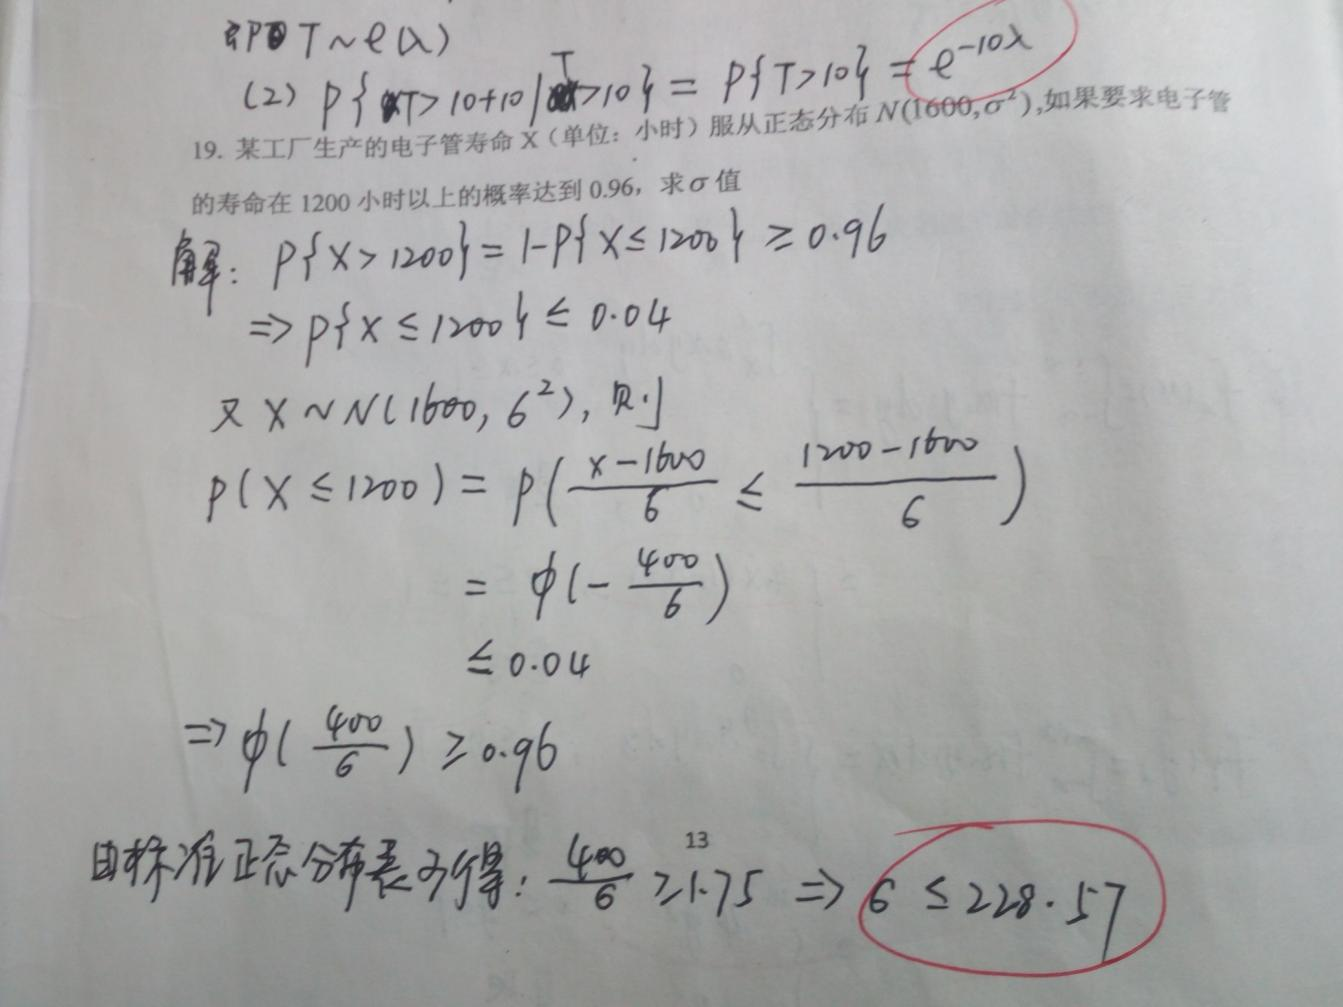 即 T~e(λ)
(2) P{T>10+10|T>10} = P{T>10} = e^{-10λ}
19. 某工厂生产的电子管寿命X(单位:小时)服从正态分布N(1600,σ²),如果要求电子管
的寿命在1200小时以上的概率达到0.96,求σ值
解: P{X>1200}=1-P{X≤1200}≥0.96
⇒P{X≤1200}≤0.04
又X~N(1600,σ²),则
P(X≤1200)=P(\frac{X-1600}{σ}≤\frac{1200-1600}{σ})
=φ(-\frac{400}{σ})
≤0.04
⇒φ(\frac{400}{σ})≥0.96
由标准正态分布表可得: \frac{400}{σ}≥1.75⇒σ≤228.57
13